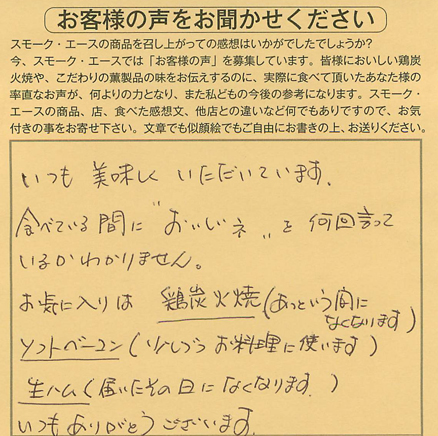 お客様の声をお聞かせください
スモーク・エースの商品を召し上がっての感想はいかがでしたでしょうか?
今、スモーク・エースでは「お客様の声」を募集しています。皆様においしい鶏炭
火焼や、こだわりの薫製品の味をお伝えするのに、実際に食べて頂いたあなた様の
率直なお声が、何よりの力となり、また私どもの今後の参考になります。スモーク・
エースの商品、店、食べた感想文、他店との違いなど何でもありですので、お気
付きの事をお寄せ下さい。文章でも似顔絵でもご自由にお書きの上、お送りください。
いつも 美味しく いただいています。
食べている間に "おいしいネ" と 何回言って
いるかわかりません。
お気に入りは 鶏炭火焼(あっという間に
なくなります)
ソフトベーコン(少しづつ お料理に使います)
生ハム(届いたその日になくなります。)
いつもありがとうございます。